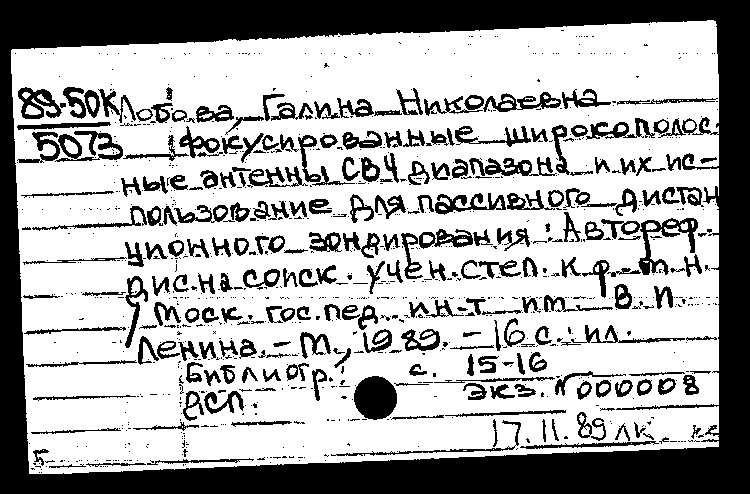 89-50К Лобова, Галина Николаевна
5073 Фокусированные широкополос-
ные антенны СВЧ диапазона и их ис-
пользование для пассивного дистан
ционного зондирования : Автореф.
дис. на соиск. учен. степ. к. ф.-м. н.
/ Моск. гос. пед. ин-т им. В. И.
Ленина. - М., 1989. - 16 с. : ил.
Библиогр.: с. 15-16
ДСП. экз. N 000008
17.11.89 лк. не
Б